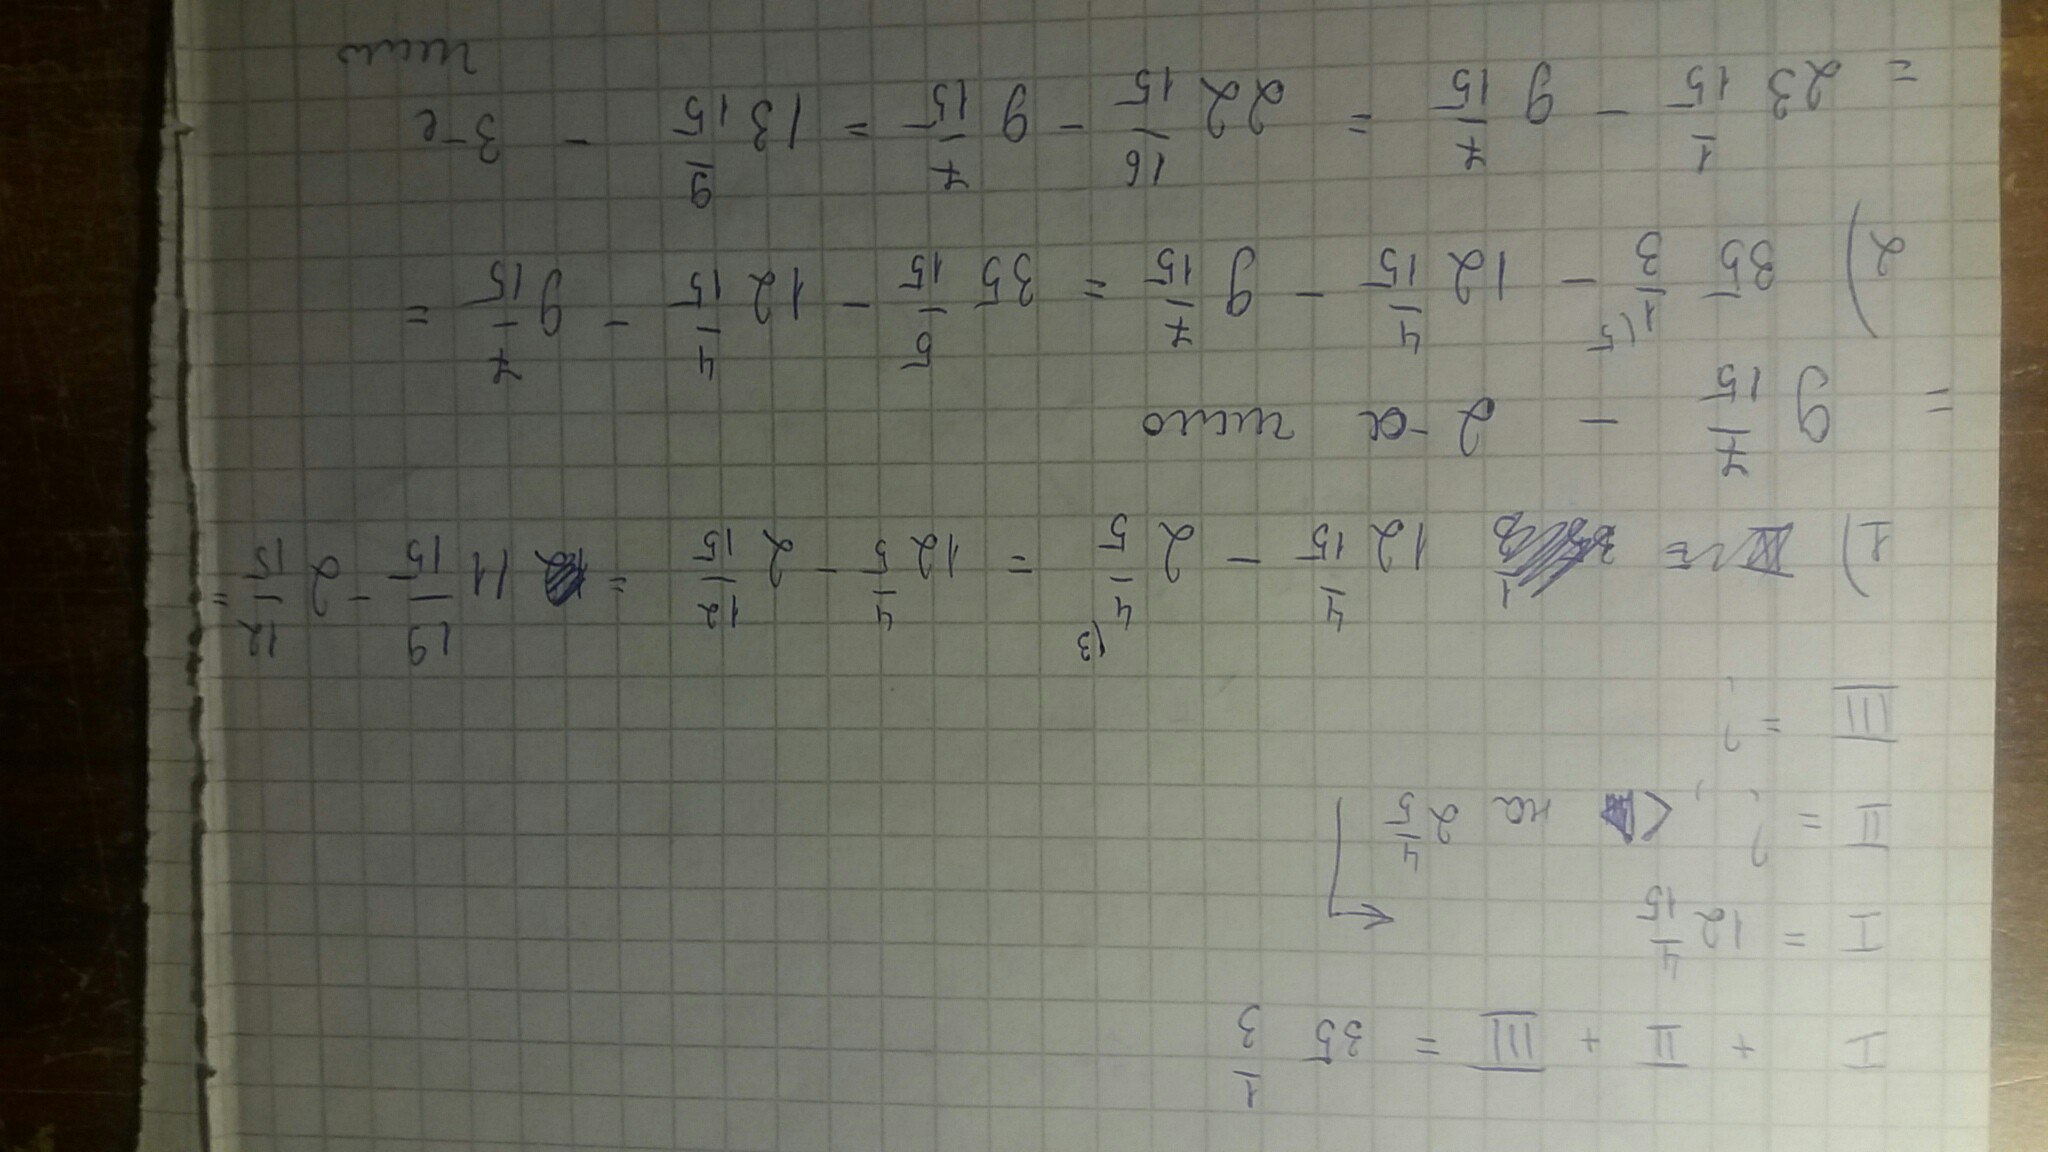 I + II + III = 35 1/3
I = 12 4/15
II = ? < на 2 4/5
III = ?
1) 12 4/15 - 2 4/5 (3 = 12 4/5 - 2 12/15 = 11 19/15 - 2 12/15 =
= 9 7/15 - 2-а число
2) 35 1/3 (5 - 12 4/15 - 9 7/15 = 35 5/15 - 12 4/15 - 9 7/15 =
= 23 1/15 - 9 7/15 = 22 16/15 - 9 7/15 = 13 9/15 - 3-е
число